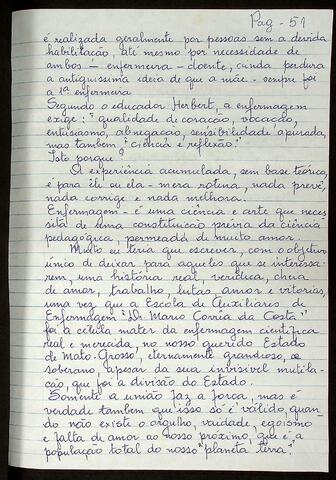 Pag - 51
é realizada geralmente por pessoas sem a devida
habilitação, até mesmo por necessidade de
ambos - enfermeira - doente, ainda perdura
a antiquíssima ideia de que a mãe - sempre foi
a 1ª enfermeira
Segundo o educador Herbert, a enfermagem
exige: "qualidade de coração, vocação,
entusiasmo, abnegação, sensibilidade apurada,
mas também "ciência e reflexão."
Isto porque?
A experiência acumulada, sem base teórica,
é para ele ou ela - mera rotina, nada prevê,
nada corrige e nada melhora.
Enfermagem - é uma ciência e arte que neces
sita de uma constituição prévia da ciência
pedagógica, permeada de muito amor.
Muito eu teria que escrever, com o objetivo
único de deixar para aqueles que se interessa-
rem, uma história real, verídica, cheia
de amor, trabalho, lutas, amor e vitórias,
uma vez que a Escola de Auxiliares de
Enfermagem "Dr Mario Corrêa da Costa"
foi a célula mater da enfermagem científica
real e merecida, no nosso querido Estado
de Mato-Grosso, eternamente grandioso, e
soberano, apesar da sua invisível mutila-
ção, que foi a divisão do Estado.
Somente a união faz a força, mas é
verdade também que isso só é válido quan
do não existe o orgulho, vaidade, egoísmo
e falta de amor ao nosso próximo, que é a
população total do nosso "planeta terra."